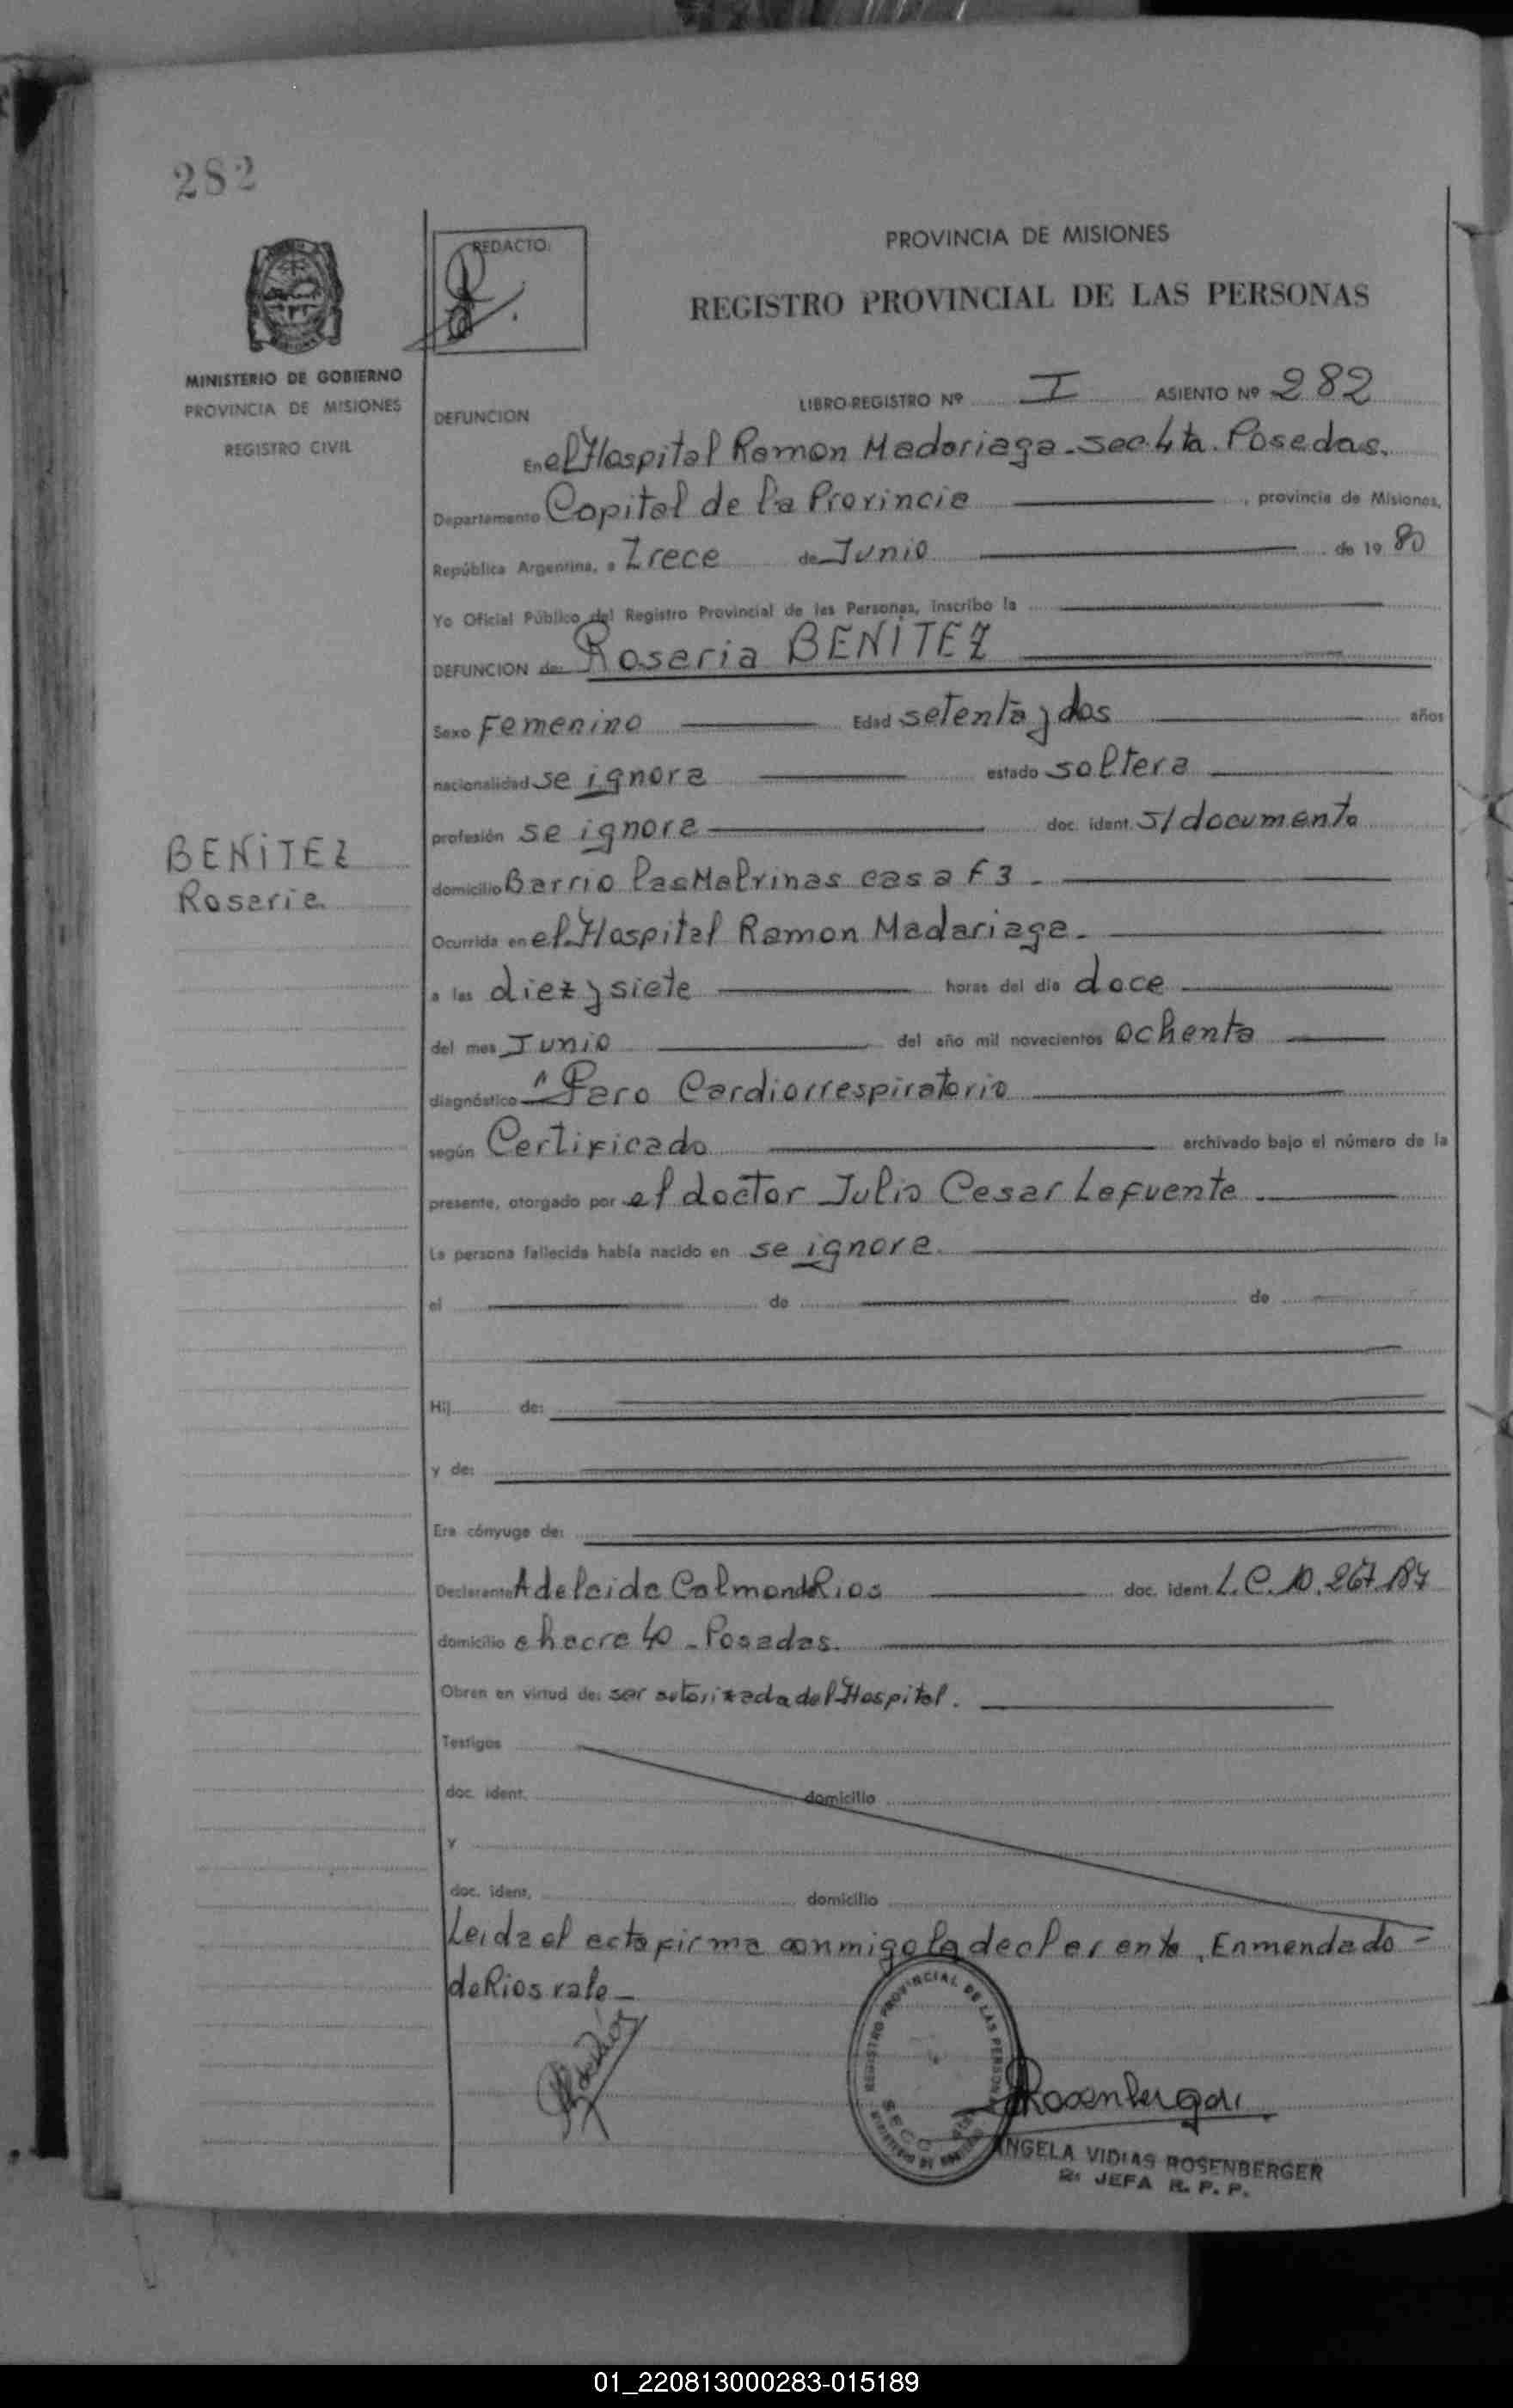 282
REDACTO:
PROVINCIA DE MISIONES
REGISTRO PROVINCIAL DE LAS PERSONAS
MINISTERIO DE GOBIERNO
PROVINCIA DE MISIONES
REGISTRO CIVIL
LIBRO-REGISTRO Nº I ASIENTO Nº 282
DEFUNCION
En el Hospital Ramon Madariaga - Sec. 4ta. Posadas.
Departamento Capital de la Provincia, provincia de Misiones,
República Argentina, a Trece de Junio de 19 80
Yo Oficial Público del Registro Provincial de las Personas, inscribo la
DEFUNCION de: Rosaria BENITEZ
Sexo Femenino Edad setenta y dos años
nacionalidad se ignora estado soltera
profesión se ignora doc. ident. S/documento
BENITEZ
Rosaria
domicilio Barrio Las Malvinas casa F 3 -
Ocurrida en el Hospital Ramon Madariaga -
a las diez y siete horas del día doce
del mes Junio del año mil novecientos ochenta
diagnóstico " Paro Cardiorrespiratorio
según Certificado archivado bajo el número de la
presente, otorgado por el doctor Julio Cesar Lafuente
La persona fallecida había nacido en se ignora
el de de
Hij de:
y de:
Era cónyuge de:
Declarante Adelaida Calmon de Rios doc. ident. L.C. 10.267.187
domicilio chacra 40 - Posadas.
Obran en virtud de: ser autorizada del Hospital.
Testigos
doc. ident. domicilio
y
doc. ident. domicilio
Leida el acta firma conmigo la declarante. Enmendado -
de Rios vale -
REGISTRO PROVINCIAL DE LAS PERSONAS
Rosenberger
ANGELA VIDIAS ROSENBERGER
2ª JEFA R. P. P.
01_220813000283-015189